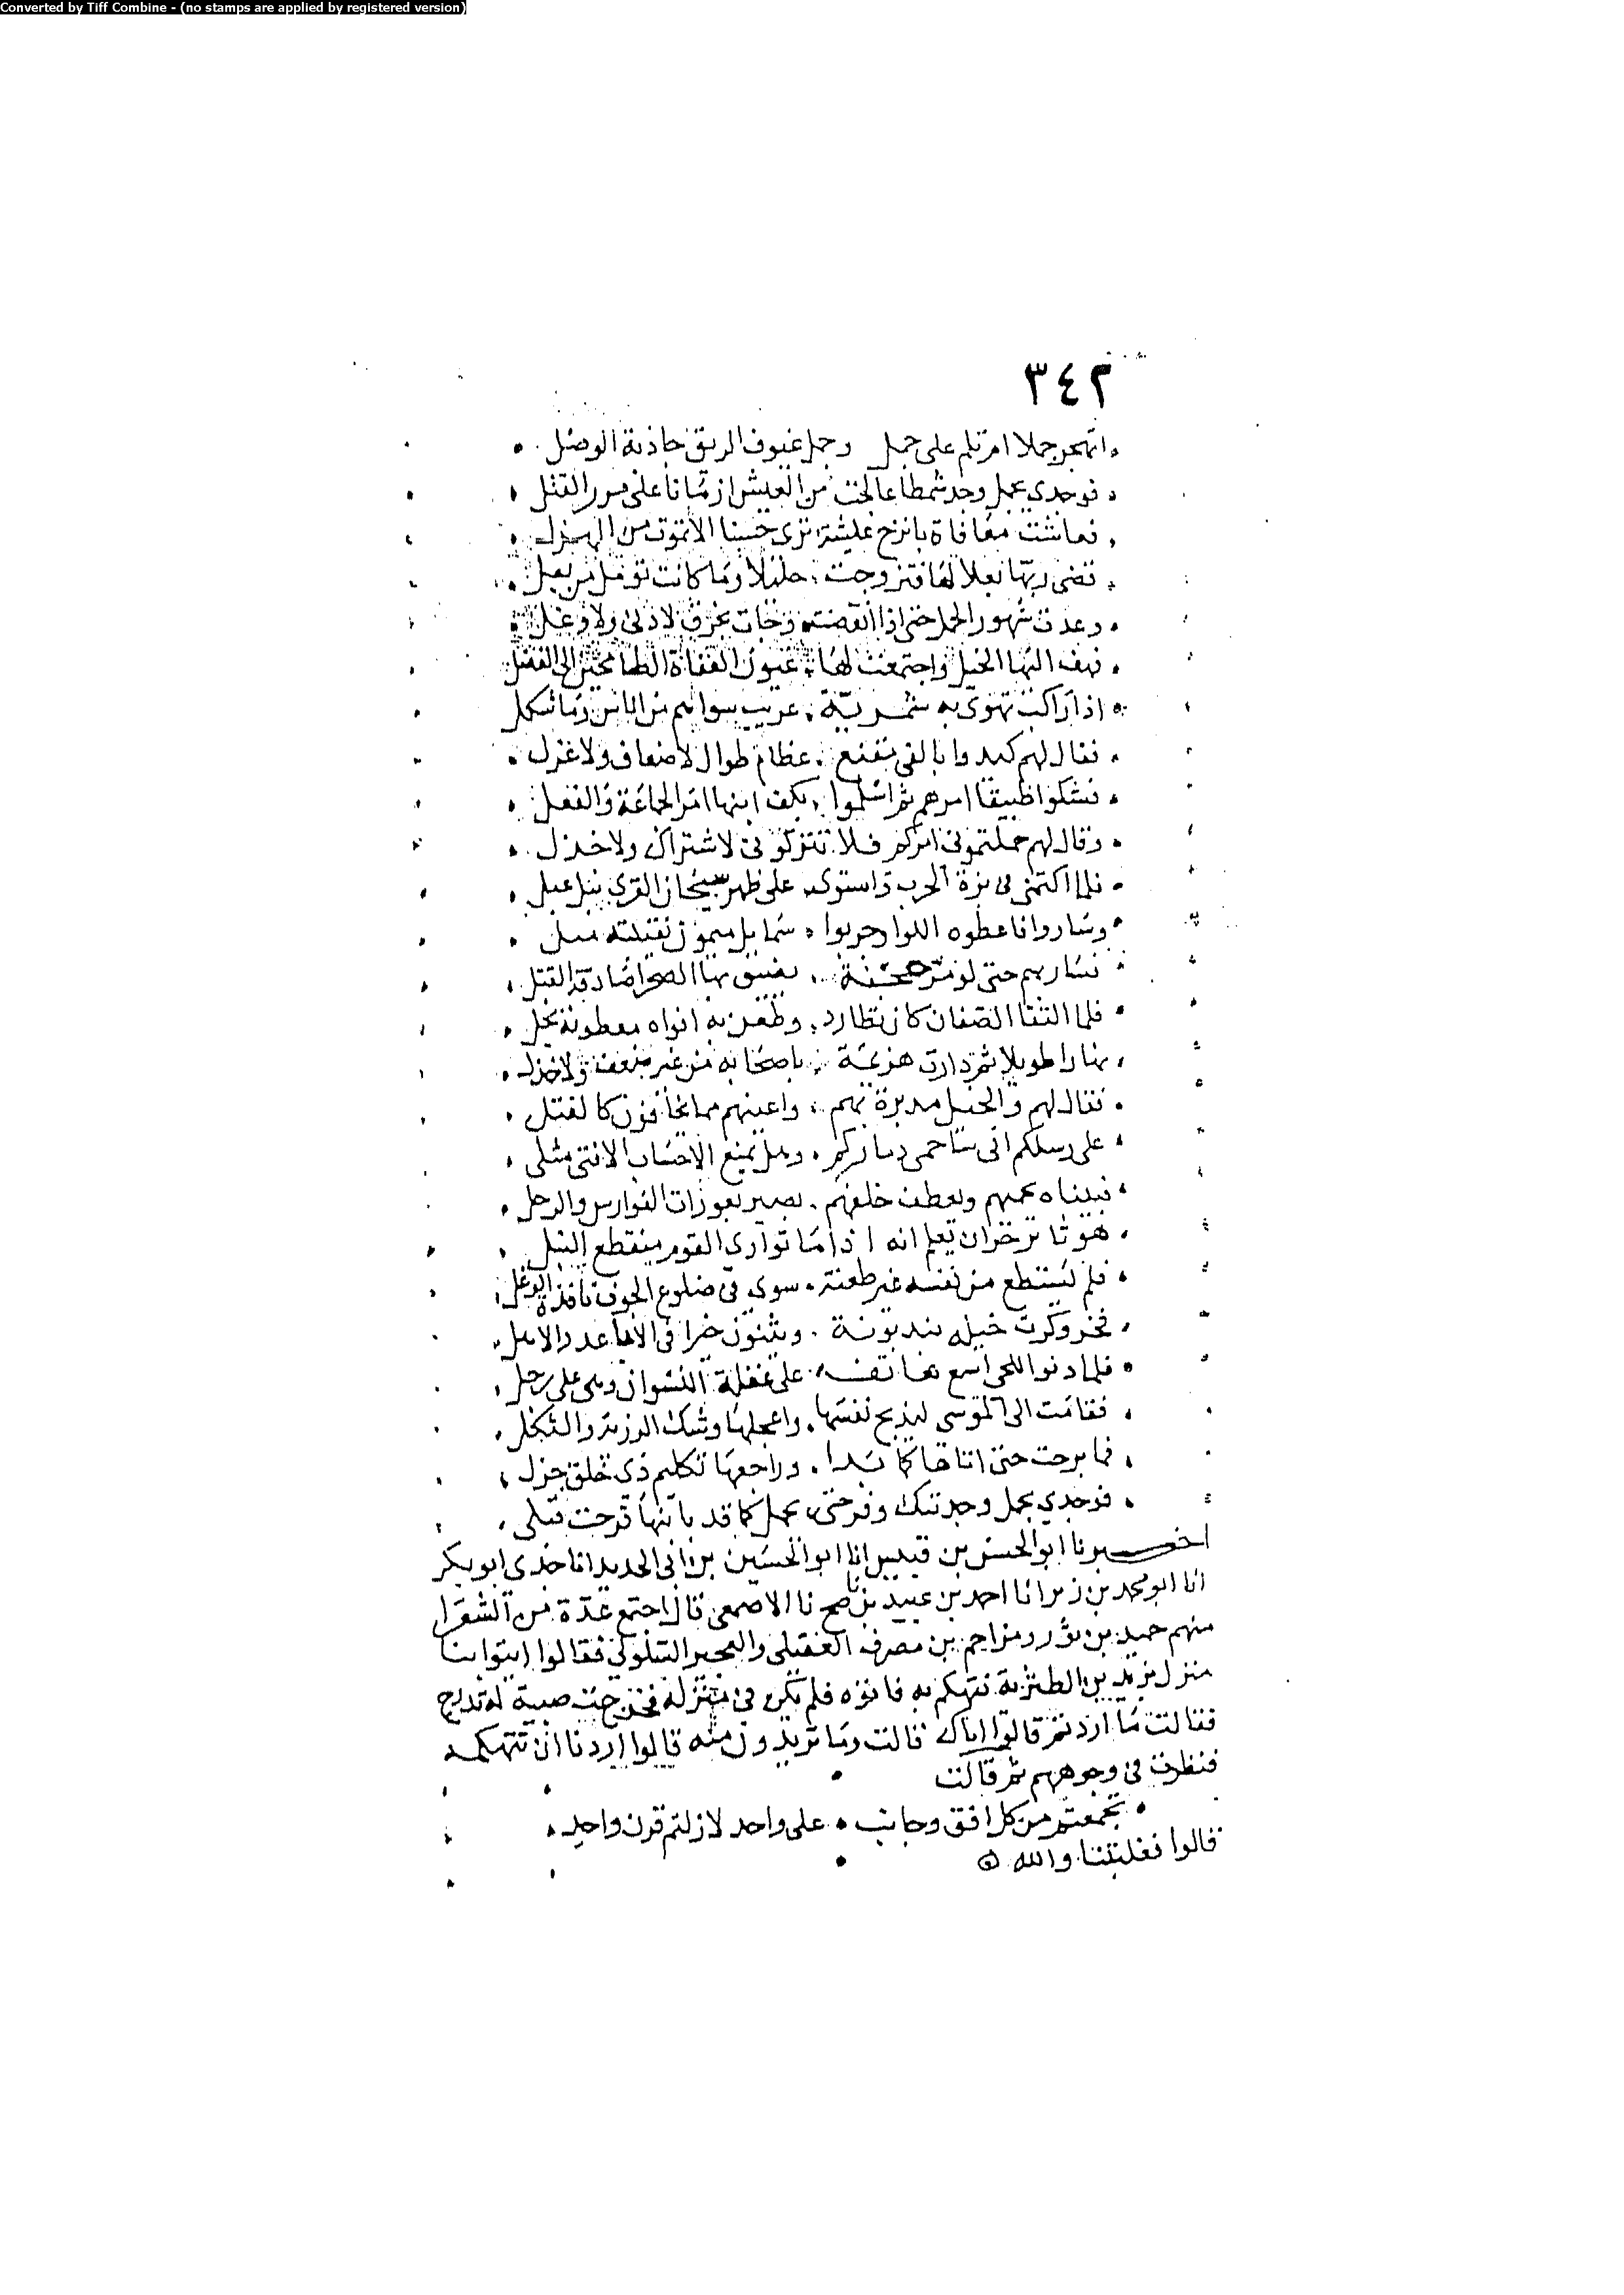 Converted by Tiff Combine - (no stamps are applied by registered version)
٣٤٢
اتهجر جملا ام تلم على جمل وجمل عيوف الريق جاذبة الوصل
فوجدي بجمل وجد شمطا عالجت من العيش ازمانا على مرر القتل
فعاشت معافاة بانزح عيشة ترى حسنا الا تموت من الهزل
قضى ربها بعلا لها فتزوجت حليلا وما كانت تومل من بعل
وعدت شهور الحمل حتى اذا انقضت وجات بخرق لا دني ولا وغل
فهف اليها الخيل واجتمعت لها عيون العفاة الطامحين الى الفضل
اذا راكب تهوي به شمرية غريب سواهم من اناس وما شكل
فقال لهم كيدوا بالفي مقنع عظام طوال لا ضعاف ولا عزل
فشكوا طبيقا امرهم ثم اسلموا بكف ابنها امر الجماعة والفعل
وقال لهم حملتموني امركم فلا تتركوني لا شتراك ولا خذل
فلما اكتسى في بزة الحرب واستوى على ظهر شيحان القرى نبل عبل
وساروا فاعطوه اللوا وجربوا شمايل ميمون نقيبته
فسار بهم حتى لوى مرجحنة تضيق بها الصحرا صادقة القتل
فلما التقا الصفان كان تطارد وطعن به افواه معطوفة نجل
نهارا طويلا ثم دارت هزيمة باصحابه من غير ضعف ولا خذل
فقال لهم والخيل مدبرة بهم واعينهم مما يخافون كالقبل
على رسلكم اني ساحمي دماركم وهل يمنع الاحساب الا فتى مثلي
فبيناه يحميهم ويعطف خلفهم بصير بعورات الفوارس والرجل
هوى ثاير حران يعلم انه اذا ما توارى القوم منقطع النبل
فلم يستطع من نفسه غير طعنة سوى في ضلوع الجوف نافذة الوغل
فخر وكرت خيله يندبونه ويثنون خيرا في الاباعد والاهل
فلما دنوا للحي اسمع هاتف على غفلة النسوان وهي على رحل
فقامت الى الموسى لتذبح نفسها واعجلها وشك الرزية والثكل
فما برحت حتى اتاها كما بدا وراجعها تكليم ذي خلق جزل
فوجدي بجمل وجد تيك وفرحتي بجمل كما قد بابنها فرحت قبلي
اخبرنا ابو الحسن بن قبيس انا ابو الحسين بن ابي الحديد انا جدي ابو بكر
انا ابو محمد بن زبر انا احمد بن عبيد بن ناصح نا الاصمعي قال اجتمع عدة من الشعرا
منهم حميد بن ثور ومزاحم بن مصرف العقيلي والعجير السلولي فقالوا ايتوا بنا
منزل يزيد بن الطثرية نتهكم به فاتوه فلم يكن في منزله فخرجت صبية له تدرج
فقالت ما اردتم قالوا اباك قالت وما تريدون منه قالوا اردنا ان نتهكمه
فنظرت في وجوههم ثم قالت
تجمعتم من كل افق وجانب على واحد لا زلتم قرن واحد
قالوا فغلبتنا والله